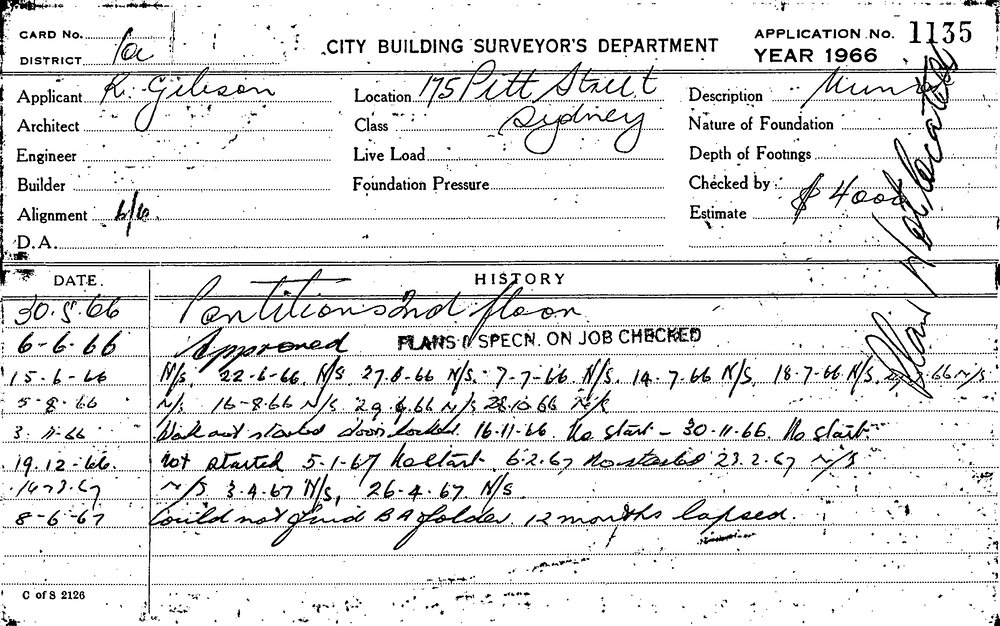 CARD No.
DISTRICT 1a
CITY BUILDING SURVEYOR'S DEPARTMENT
APPLICATION No. 1135
YEAR 1966
Applicant K. Gibson
Location 175 Pitt Street
Sydney
Description
Architect
Class
Nature of Foundation
Engineer
Live Load
Depth of Footings
Builder
Foundation Pressure
Checked by
Alignment 6/6.
Estimate $ 4000
D.A.
Plan Not Located
DATE. HISTORY
30.5.66 Partitions 2nd floor
6-6-66 Approved PLANS & SPECN. ON JOB CHECKED
15-6-66 N/S. 22-6-66. N/S 27.6-66 N/S. 7-7-66 N/S. 14.7.66 N/S. 18-7-66 N/S. 66 N/S
5-8-66 N/S 16-8.66 N/S 29 66 N/S 28.10.66 N/S
3.11.66 Work not started door locked. 16.11.66. No start - 30-11-66. No start.
19.12-66. not started 5-1-67 No start. 6.2.67 No started 23.2.67 N/S
14-3-67 N/S 3.4.67 N/S, 26-4.67. N/S.
8-6-67 Could not find BA folder 12 months lapsed.
C of S 2126